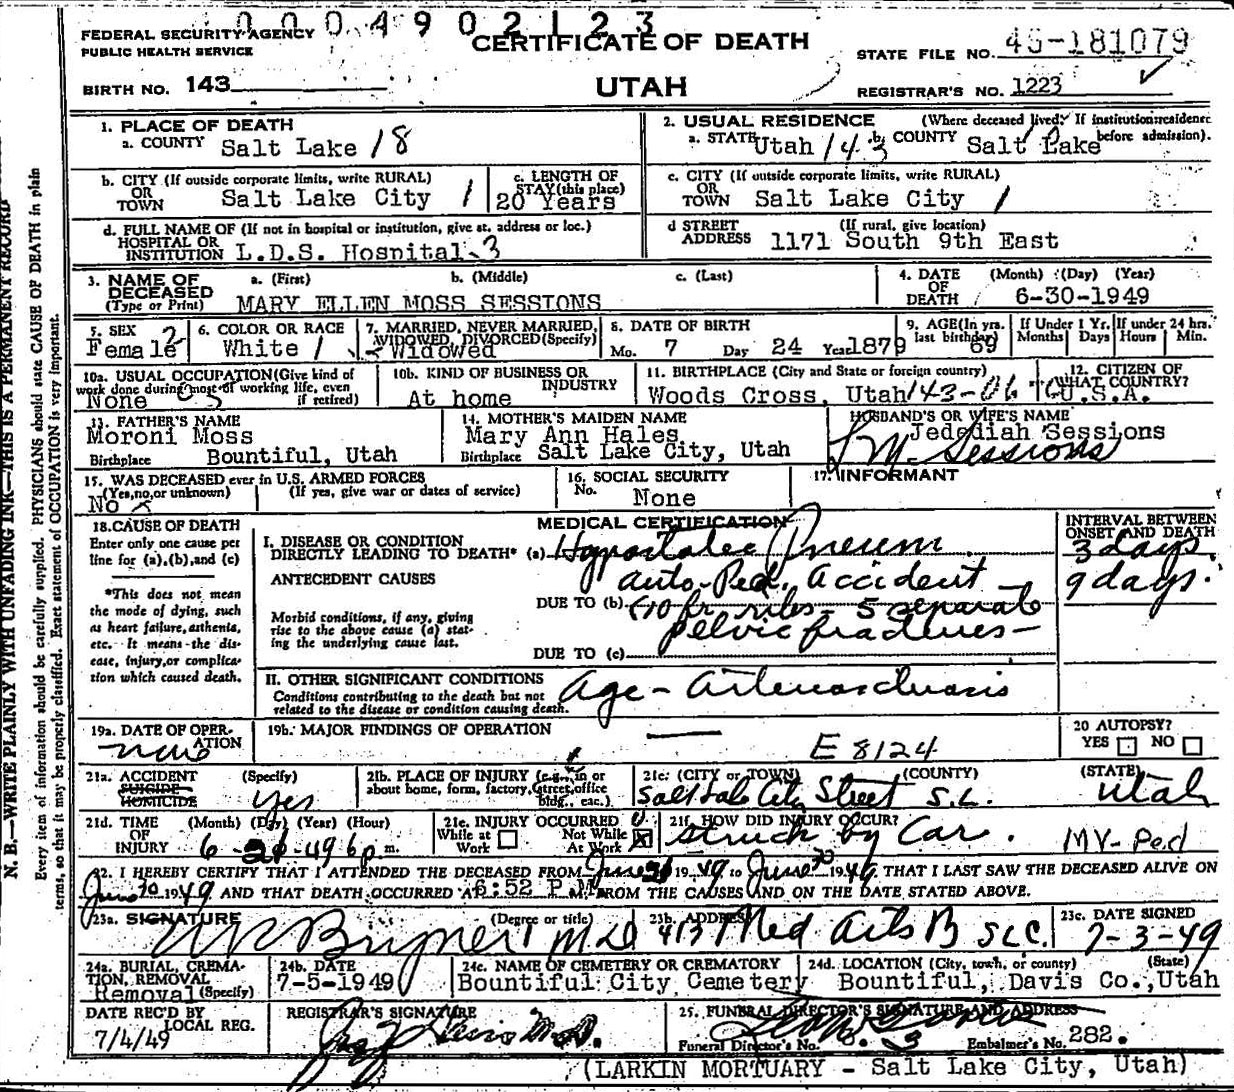 0004902123
FEDERAL SECURITY AGENCY
PUBLIC HEALTH SERVICE
CERTIFICATE OF DEATH
STATE FILE NO. 181079
BIRTH NO. 143
UTAH
REGISTRAR'S NO. 1223
1. PLACE OF DEATH
a. COUNTY Salt Lake 18
2. USUAL RESIDENCE (Where deceased lived. If institution: residence before admission).
a. STATE Utah 143 b. COUNTY Salt Lake
b. CITY (If outside corporate limits, write RURAL)
OR TOWN Salt Lake City 1
c. LENGTH OF STAY (this place)
20 Years
c. CITY (If outside corporate limits, write RURAL)
OR TOWN Salt Lake City 1
d. FULL NAME OF (If not in hospital or institution, give st. address or loc.)
HOSPITAL OR INSTITUTION L.D.S. Hospital 3
d STREET ADDRESS (If rural, give location)
1171 South 9th East
3. NAME OF DECEASED (Type or Print)
a. (First) b. (Middle) c. (Last)
MARY ELLEN MOSS SESSIONS
4. DATE OF DEATH (Month) (Day) (Year)
6-30-1949
5. SEX 2
Female
6. COLOR OR RACE
White 1
7. MARRIED, NEVER MARRIED, WIDOWED, DIVORCED (Specify)
Widowed
8. DATE OF BIRTH
Mo. 7 Day 24 Year 1879
9. AGE (In yrs. last birthday)
69
If Under 1 Yr. Months Days
If under 24 hrs. Hours Min.
10a. USUAL OCCUPATION (Give kind of work done during most of working life, even if retired)
None
10b. KIND OF BUSINESS OR INDUSTRY
At home
11. BIRTHPLACE (City and State or foreign country)
Woods Cross, Utah 143-06
12. CITIZEN OF WHAT COUNTRY?
U.S.A.
13. FATHER'S NAME
Moroni Moss
Birthplace Bountiful, Utah
14. MOTHER'S MAIDEN NAME
Mary Ann Hales
Birthplace Salt Lake City, Utah
HUSBAND'S OR WIFE'S NAME
Jedediah Sessions
L M Sessions
15. WAS DECEASED ever in U.S. ARMED FORCES
(Yes, no, or unknown) (If yes, give war or dates of service)
No x
16. SOCIAL SECURITY
No. None
17. INFORMANT
18. CAUSE OF DEATH
Enter only one cause per line for (a), (b), and (c)
*This does not mean the mode of dying, such as heart failure, asthenia, etc. It means the disease, injury, or complication which caused death.
MEDICAL CERTIFICATION
INTERVAL BETWEEN ONSET AND DEATH
I. DISEASE OR CONDITION DIRECTLY LEADING TO DEATH* (a) Hypostatic Pneum.
3 days
ANTECEDENT CAUSES
Auto-Ped. Accident
9 days.
Morbid conditions, if any, giving rise to the above cause (a) stating the underlying cause last.
DUE TO (b) (10 fr ribs - 5 separate
pelvic fractures -
DUE TO (c)
II. OTHER SIGNIFICANT CONDITIONS
Conditions contributing to the death but not related to the disease or condition causing death.
Age - Arteriosclerosis
19a. DATE OF OPERATION
none
19b. MAJOR FINDINGS OF OPERATION
E 8124
20 AUTOPSY?
YES NO
21a. ACCIDENT SUICIDE HOMICIDE (Specify)
yes
21b. PLACE OF INJURY (e.g., in or about home, form, factory, street, office bldg., eac.)
21c. (CITY or TOWN) (COUNTY) (STATE)
Salt Lake City Street S.L. Utah
21d. TIME OF INJURY (Month) (Day) (Year) (Hour)
6-21-49 6 p m.
21e. INJURY OCCURRED
While at Work Not While At Work
21f. HOW DID INJURY OCCUR?
Struck by Car. MV-Ped
22. I HEREBY CERTIFY THAT I ATTENDED THE DECEASED FROM June 21 1949 to June 30 1949 THAT I LAST SAW THE DECEASED ALIVE ON
June 30 1949 AND THAT DEATH OCCURRED AT 6:52 P.M. FROM THE CAUSES AND ON THE DATE STATED ABOVE.
23a. SIGNATURE (Degree or title)
Bryner M D
23b. ADDRESS
413 Med Arts B SLC.
23c. DATE SIGNED
7-3-49
24a. BURIAL, CREMATION, REMOVAL (Specify)
Removal
24b. DATE
7-5-1949
24c. NAME OF CEMETERY OR CREMATORY
Bountiful City Cemetery
24d. LOCATION (City, town, or county) (State)
Bountiful, Davis Co., Utah
DATE REC'D BY LOCAL REG.
7/4/49
REGISTRAR'S SIGNATURE
25. FUNERAL DIRECTOR'S SIGNATURE AND ADDRESS
Funeral Director's No. Embalmer's No. 282.
(LARKIN MORTUARY - Salt Lake City, Utah)
N. B.—WRITE PLAINLY WITH UNFADING INK—THIS IS A PERMANENT RECORD
Every item of information should be carefully supplied. PHYSICIANS should state CAUSE OF DEATH in plain
terms, so that it may be properly classified. Exact statement of OCCUPATION is very important.